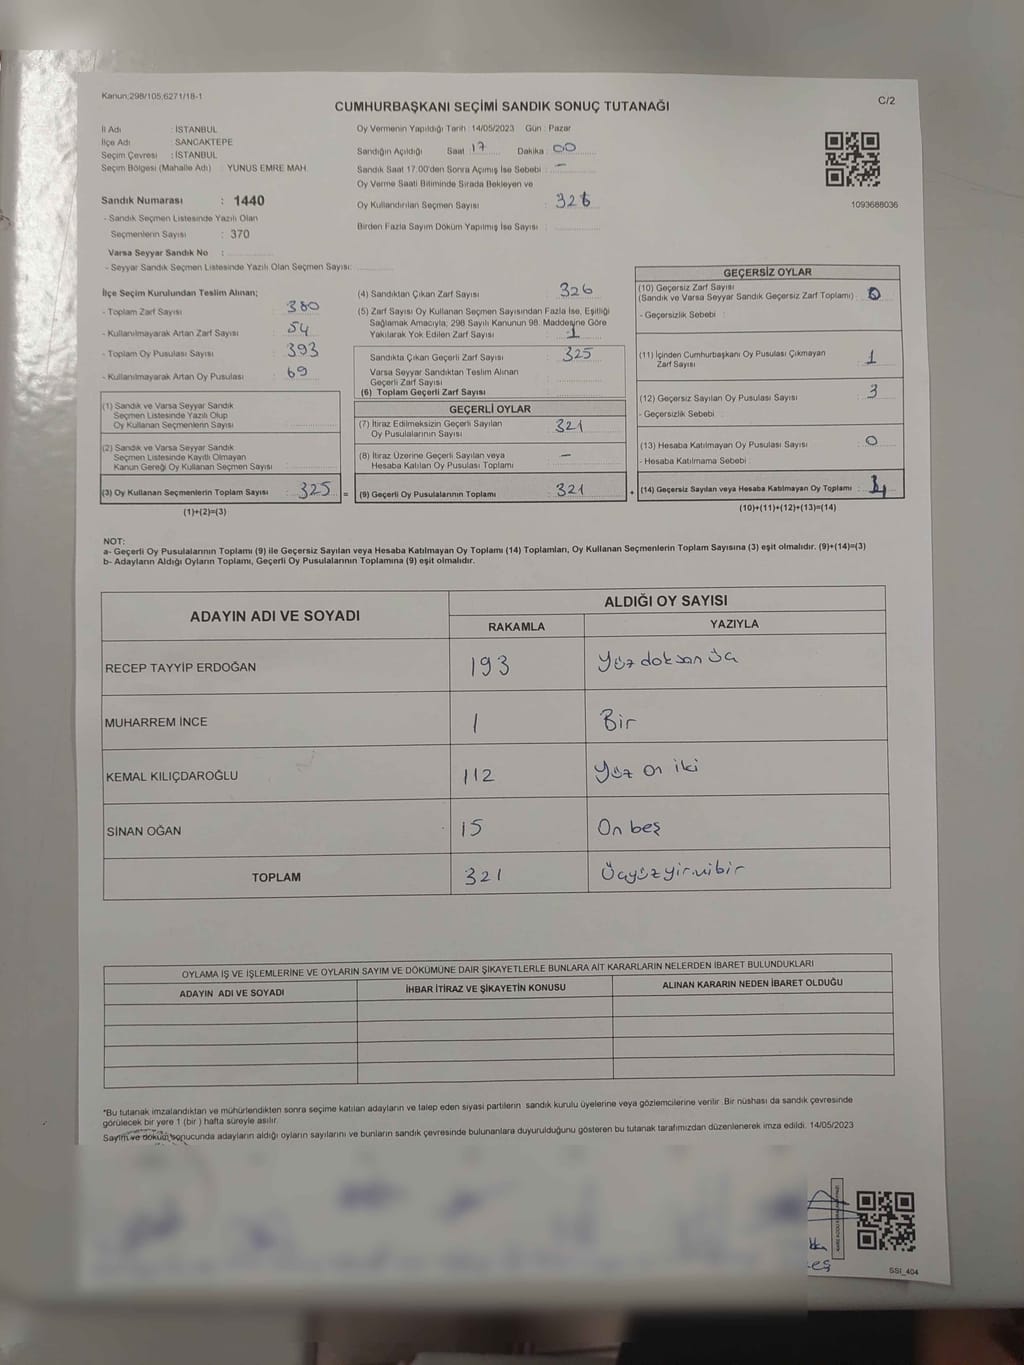 Kanun;298/105,6271/18-1
C/2
CUMHURBAŞKANI SEÇİMİ SANDIK SONUÇ TUTANAĞI
İl Adı : İSTANBUL
İlçe Adı : SANCAKTEPE
Seçim Çevresi : İSTANBUL
Seçim Bölgesi (Mahalle Adı) : YUNUS EMRE MAH.
Sandık Numarası : 1440
- Sandık Seçmen Listesinde Yazılı Olan
Seçmenlerin Sayısı : 370
Varsa Seyyar Sandık No :
- Seyyar Sandık Seçmen Listesinde Yazılı Olan Seçmen Sayısı:
Oy Vermenin Yapıldığı Tarih : 14/05/2023 Gün : Pazar
Sandığın Açıldığı Saat 17 Dakika : 00
Sandık Saat 17:00'den Sonra Açımış İse Sebebi : -
Oy Verme Saati Bitiminde Sırada Bekleyen ve
Oy Kullandırılan Seçmen Sayısı : 326
Birden Fazla Sayım Döküm Yapılmış İse Sayısı :
1093688036
İlçe Seçim Kurulundan Teslim Alınan;
- Toplam Zarf Sayısı : 380
- Kullanılmayarak Artan Zarf Sayısı : 54
- Toplam Oy Pusulası Sayısı : 393
- Kullanılmayarak Artan Oy Pusulası : 69
(1) Sandık ve Varsa Seyyar Sandık
Seçmen Listesinde Yazılı Olup
Oy Kullanan Seçmenlerin Sayısı :
(2) Sandık ve Varsa Seyyar Sandık
Seçmen Listesinde Kayıtlı Olmayan
Kanun Gereği Oy Kullanan Seçmen Sayısı :
(3) Oy Kullanan Seçmenlerin Toplam Sayısı : 325 =
(1)+(2)=(3)
(4) Sandıktan Çıkan Zarf Sayısı : 326
(5) Zarf Sayısı Oy Kullanan Seçmen Sayısından Fazla İse, Eşitliği
Sağlamak Amacıyla; 298 Sayılı Kanunun 98. Maddesine Göre
Yakılarak Yok Edilen Zarf Sayısı : 1
Sandıkta Çıkan Geçerli Zarf Sayısı : 325
Varsa Seyyar Sandıktan Teslim Alınan
Geçerli Zarf Sayısı :
(6) Toplam Geçerli Zarf Sayısı :
GEÇERLİ OYLAR
(7) İtiraz Edilmeksizin Geçerli Sayılan
Oy Pusulalarının Sayısı : 321
(8) İtiraz Üzerine Geçerli Sayılan veya
Hesaba Katılan Oy Pusulası Toplamı : -
(9) Geçerli Oy Pusulalarının Toplamı : 321 +
GEÇERSİZ OYLAR
(10) Geçersiz Zarf Sayısı
(Sandık ve Varsa Seyyar Sandık Geçersiz Zarf Toplamı) : 0
- Geçersizlik Sebebi :
(11) İçinden Cumhurbaşkanı Oy Pusulası Çıkmayan
Zarf Sayısı : 1
(12) Geçersiz Sayılan Oy Pusulası Sayısı : 3
- Geçersizlik Sebebi :
(13) Hesaba Katılmayan Oy Pusulası Sayısı : 0
- Hesaba Katılmama Sebebi :
(14) Geçersiz Sayılan veya Hesaba Katılmayan Oy Toplamı : 4
(10)+(11)+(12)+(13)=(14)
NOT:
a- Geçerli Oy Pusulalarının Toplamı (9) ile Geçersiz Sayılan veya Hesaba Katılmayan Oy Toplamı (14) Toplamları, Oy Kullanan Seçmenlerin Toplam Sayısına (3) eşit olmalıdır. (9)+(14)=(3)
b- Adayların Aldığı Oyların Toplamı, Geçerli Oy Pusulalarının Toplamına (9) eşit olmalıdır.
ADAYIN ADI VE SOYADI
ALDIĞI OY SAYISI
RAKAMLA YAZIYLA
RECEP TAYYİP ERDOĞAN 193 Yüz doksan üç
MUHARREM İNCE 1 Bir
KEMAL KILIÇDAROĞLU 112 Yüz on iki
SİNAN OĞAN 15 On beş
TOPLAM 321 Üçyüzyirmibir
OYLAMA İŞ VE İŞLEMLERİNE VE OYLARIN SAYIM VE DÖKÜMÜNE DAİR ŞİKAYETLERLE BUNLARA AİT KARARLARIN NELERDEN İBARET BULUNDUKLARI
ADAYIN ADI VE SOYADI İHBAR İTİRAZ VE ŞİKAYETİN KONUSU ALINAN KARARIN NEDEN İBARET OLDUĞU
*Bu tutanak imzalandıktan ve mühürlendikten sonra seçime katılan adayların ve talep eden siyasi partilerin sandık kurulu üyelerine veya gözlemcilerine verilir. Bir nüshası da sandık çevresinde
görülecek bir yere 1 (bir) hafta süreyle asılır.
Sayım ve döküm sonucunda adayların aldığı oyların sayılarını ve bunların sandık çevresinde bulunanlara duyurulduğunu gösteren bu tutanak tarafımızdan düzenlenerek imza edildi. 14/05/2023
SSI_404